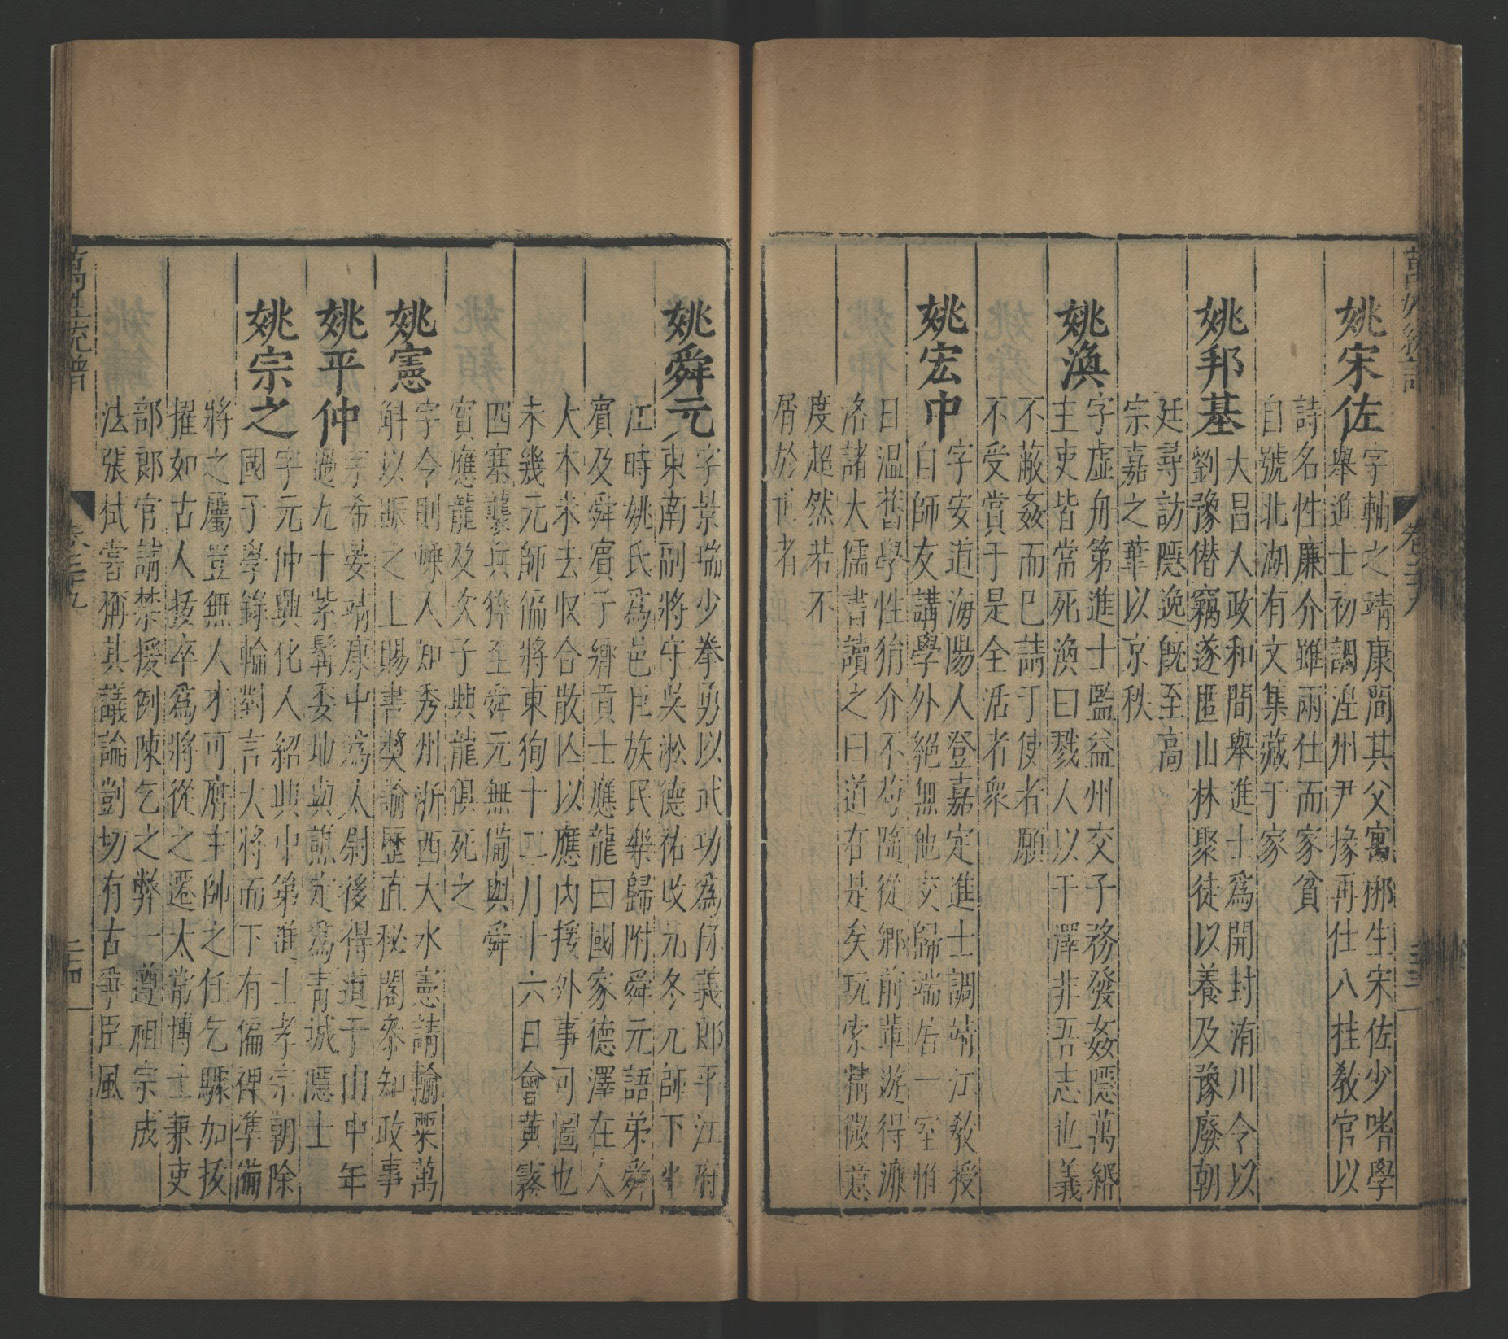 姚宋佐
字輔之靖康間其父寓梛生宋佐少嗜學
舉進士初調淫州尹掾再仕八挂敎官以
詩名性廉介雖兩仕而家貧
自號北湖有文集藏于家
姚邦基
大昌人政和間舉進士爲開封洧川令以
劉豫僭竊遂匿山林聚徒以養及豫廢朝
廷尋訪隱逸旣至高
宗嘉之䔢以京秩
姚渙
字虛舟第進士監益州交子務發姦隱萬緡
主吏皆常死渙曰戮人以干澤非吾志也義
不蔽姦而已請于使者願
不受賞于是全活者衆
姚宏中
字安道海陽人登嘉定進士調靖江敎授
自師友講學外絕無他交歸端居一室惟
日温舊學性狷介不苟隨從鄉前輩遊得濂
洛諸大儒書讀之曰道在是矣玩索精微意
度超然若不
屑於世者
姚舜元
字景瑞少拳勇以武功爲保義郎平江府
東南副將守吳淞德祐改元冬元師下平
江時姚氏爲邑巨族民樂歸附舜元語弟舜
賓及舜賓子鄉貢士應龍曰國家德澤在人
大本未去收合散亾以應內援外事可圖也
未幾元師徧將東狥十二月十六日會黄霧
四塞襲兵猝至舜元無備與舜
賓應龍及次子興龍俱死之
姚憲
字令則嵊人知秀州浙西大水憲請輸粟萬
斛以賑之上賜書奬諭歷直秘閣叅知政事
姚平仲
字希晏靖康中爲太尉後得道于山中年
過九十紫髯委地與譙定爲青城隱士
姚宗之
字元仲興化人紹興中第進士孝宗朝除
國子學錄輪對言大將而下有偏裨準備
將之屬豈無人才可膺主帥之任乞驟加拔
擢如古人拔卒爲將從之遷太常博士兼吏
部郎官請禁援例陳乞之弊一遵祖宗成
法張栻嘗稱其議論剴切有古爭臣風
萬姓統譜
卷之二十九